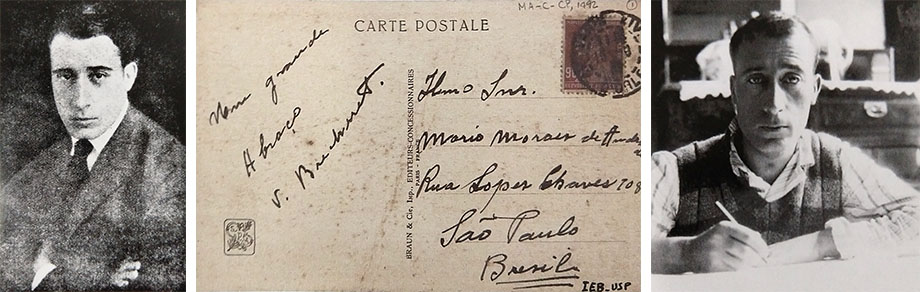 MA-C-CP, 1492
1
CARTE POSTALE
Num grande
Abraço
V. Brecheret.
BRAUN & Cie, Imp., EDITEURS-CONCESSIONNAIRES
PARIS - FRANCE
Ilmo Snr.
Mario Moraes de
Rua Lopes Chaves 108
São Paulo
Bresil
IEB-USP